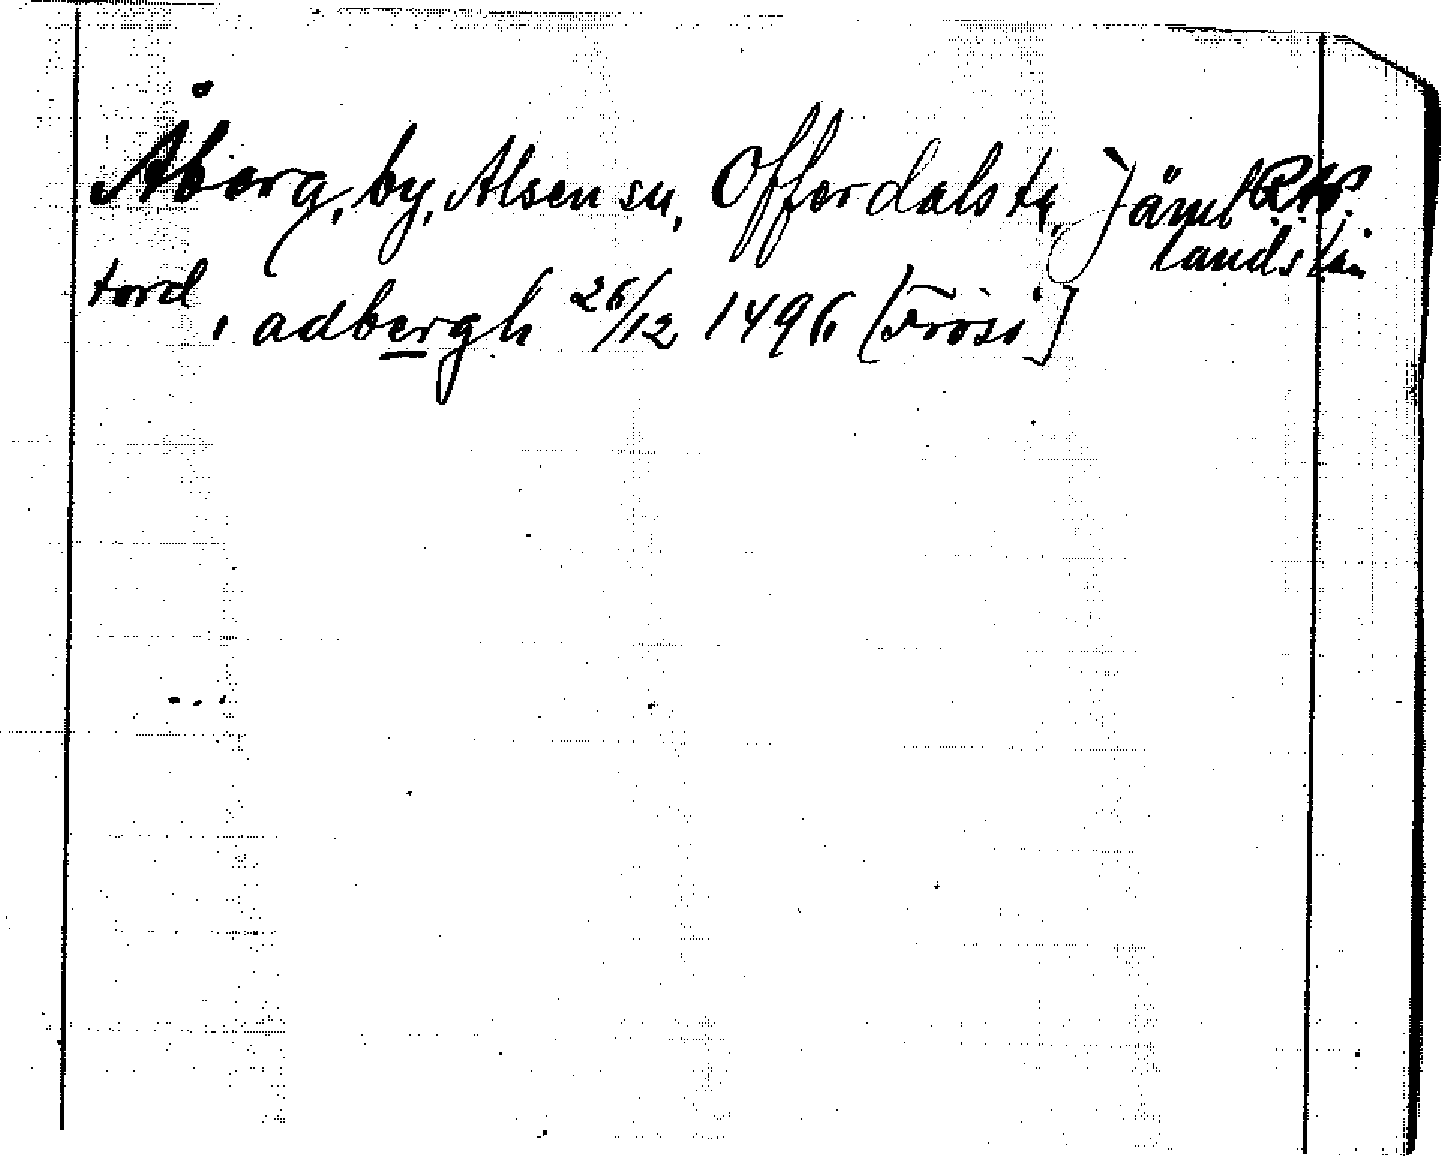 Åberg, by, Alsen sn, Offerdals tg, Jämt RAP.
lands län
tord i adbergh 26/12 1496 [Frösö]